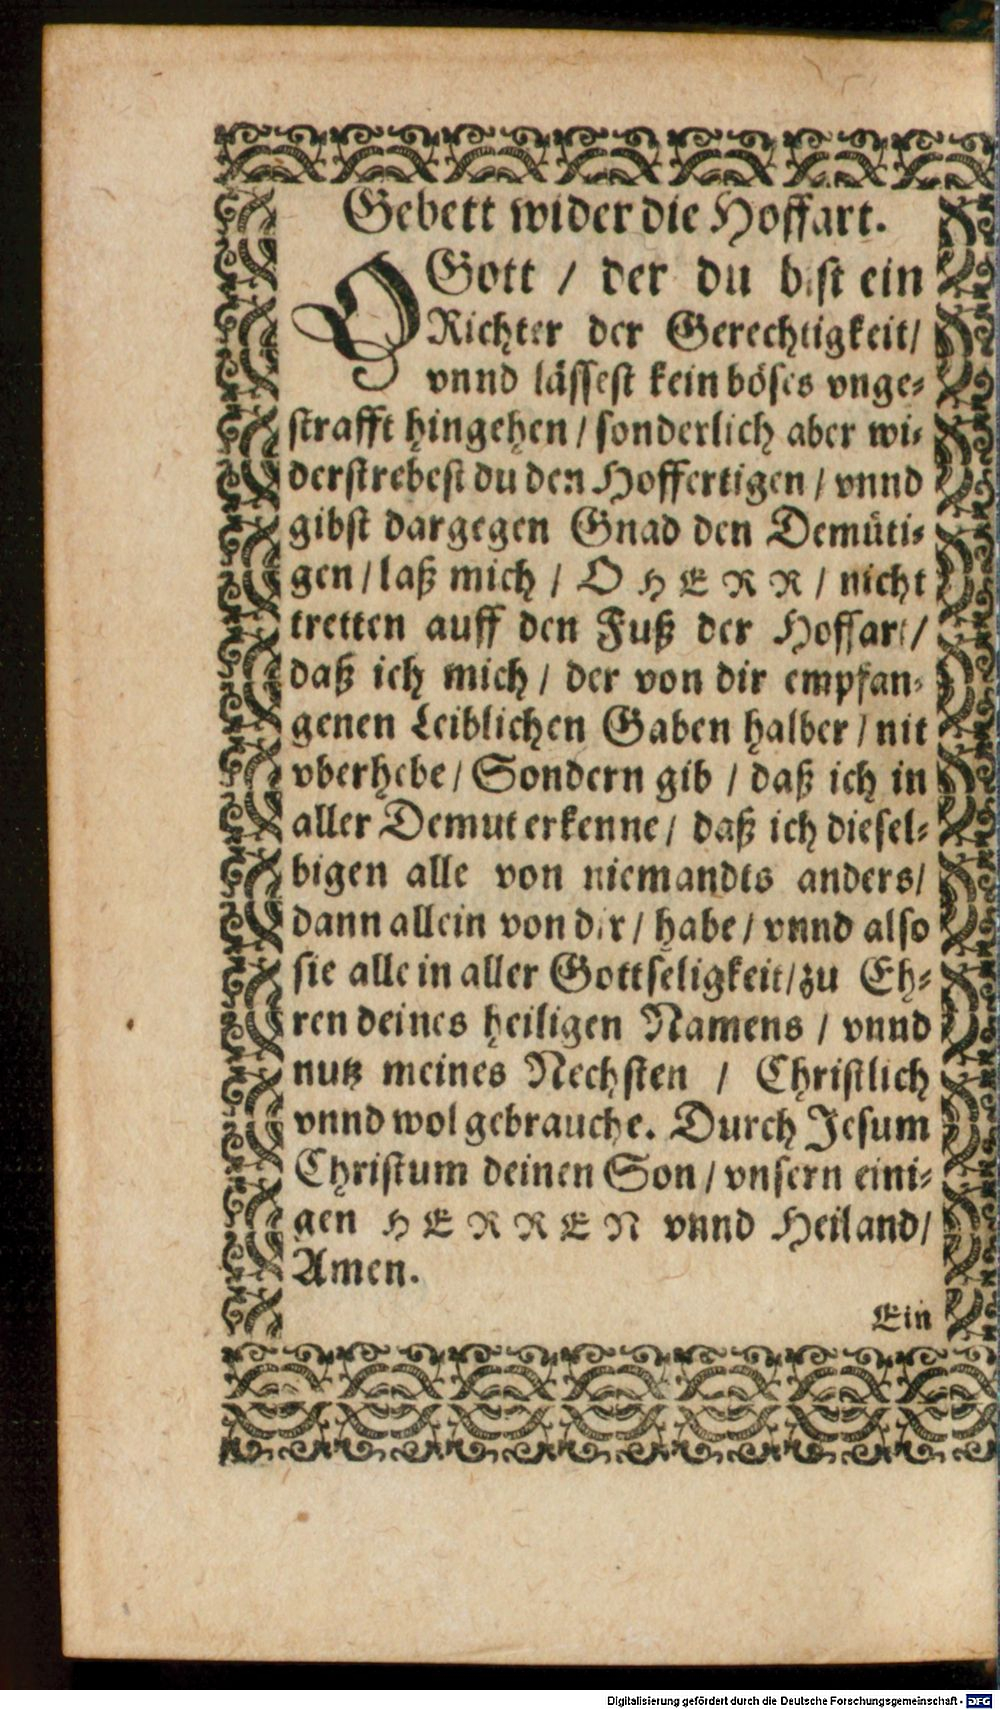 Gebett wider die Hoffart.
O Gott / der du bist ein
Richter der Gerechtigkeit/
vnnd lässest kein böses vnge-
strafft hingehen / sonderlich aber wi-
derstrebest du den Hoffertigen / vnnd
gibst dargegen Gnad den Demüti-
gen / laß mich / O HERR / nicht
tretten auff den Fuß der Hoffart/
daß ich mich / der von dir empfan-
genen Leiblichen Gaben halber / nit
vberhebe / Sondern gib / daß ich in
aller Demut erkenne / daß ich diesel-
bigen alle von niemandts anders/
dann allein von dir / habe / vnnd also
sie alle in aller Gottseligkeit/zu Eh-
ren deines heiligen Namens / vnnd
nutz meines Nechsten / Christlich
vnnd wol gebrauche. Durch Jesum
Christum deinen Son / vnsern eini-
gen HERREN vnnd Heiland/
Amen.
Ein
Digitalisierung gefördert durch die Deutsche Forschungsgemeinschaft - DFG